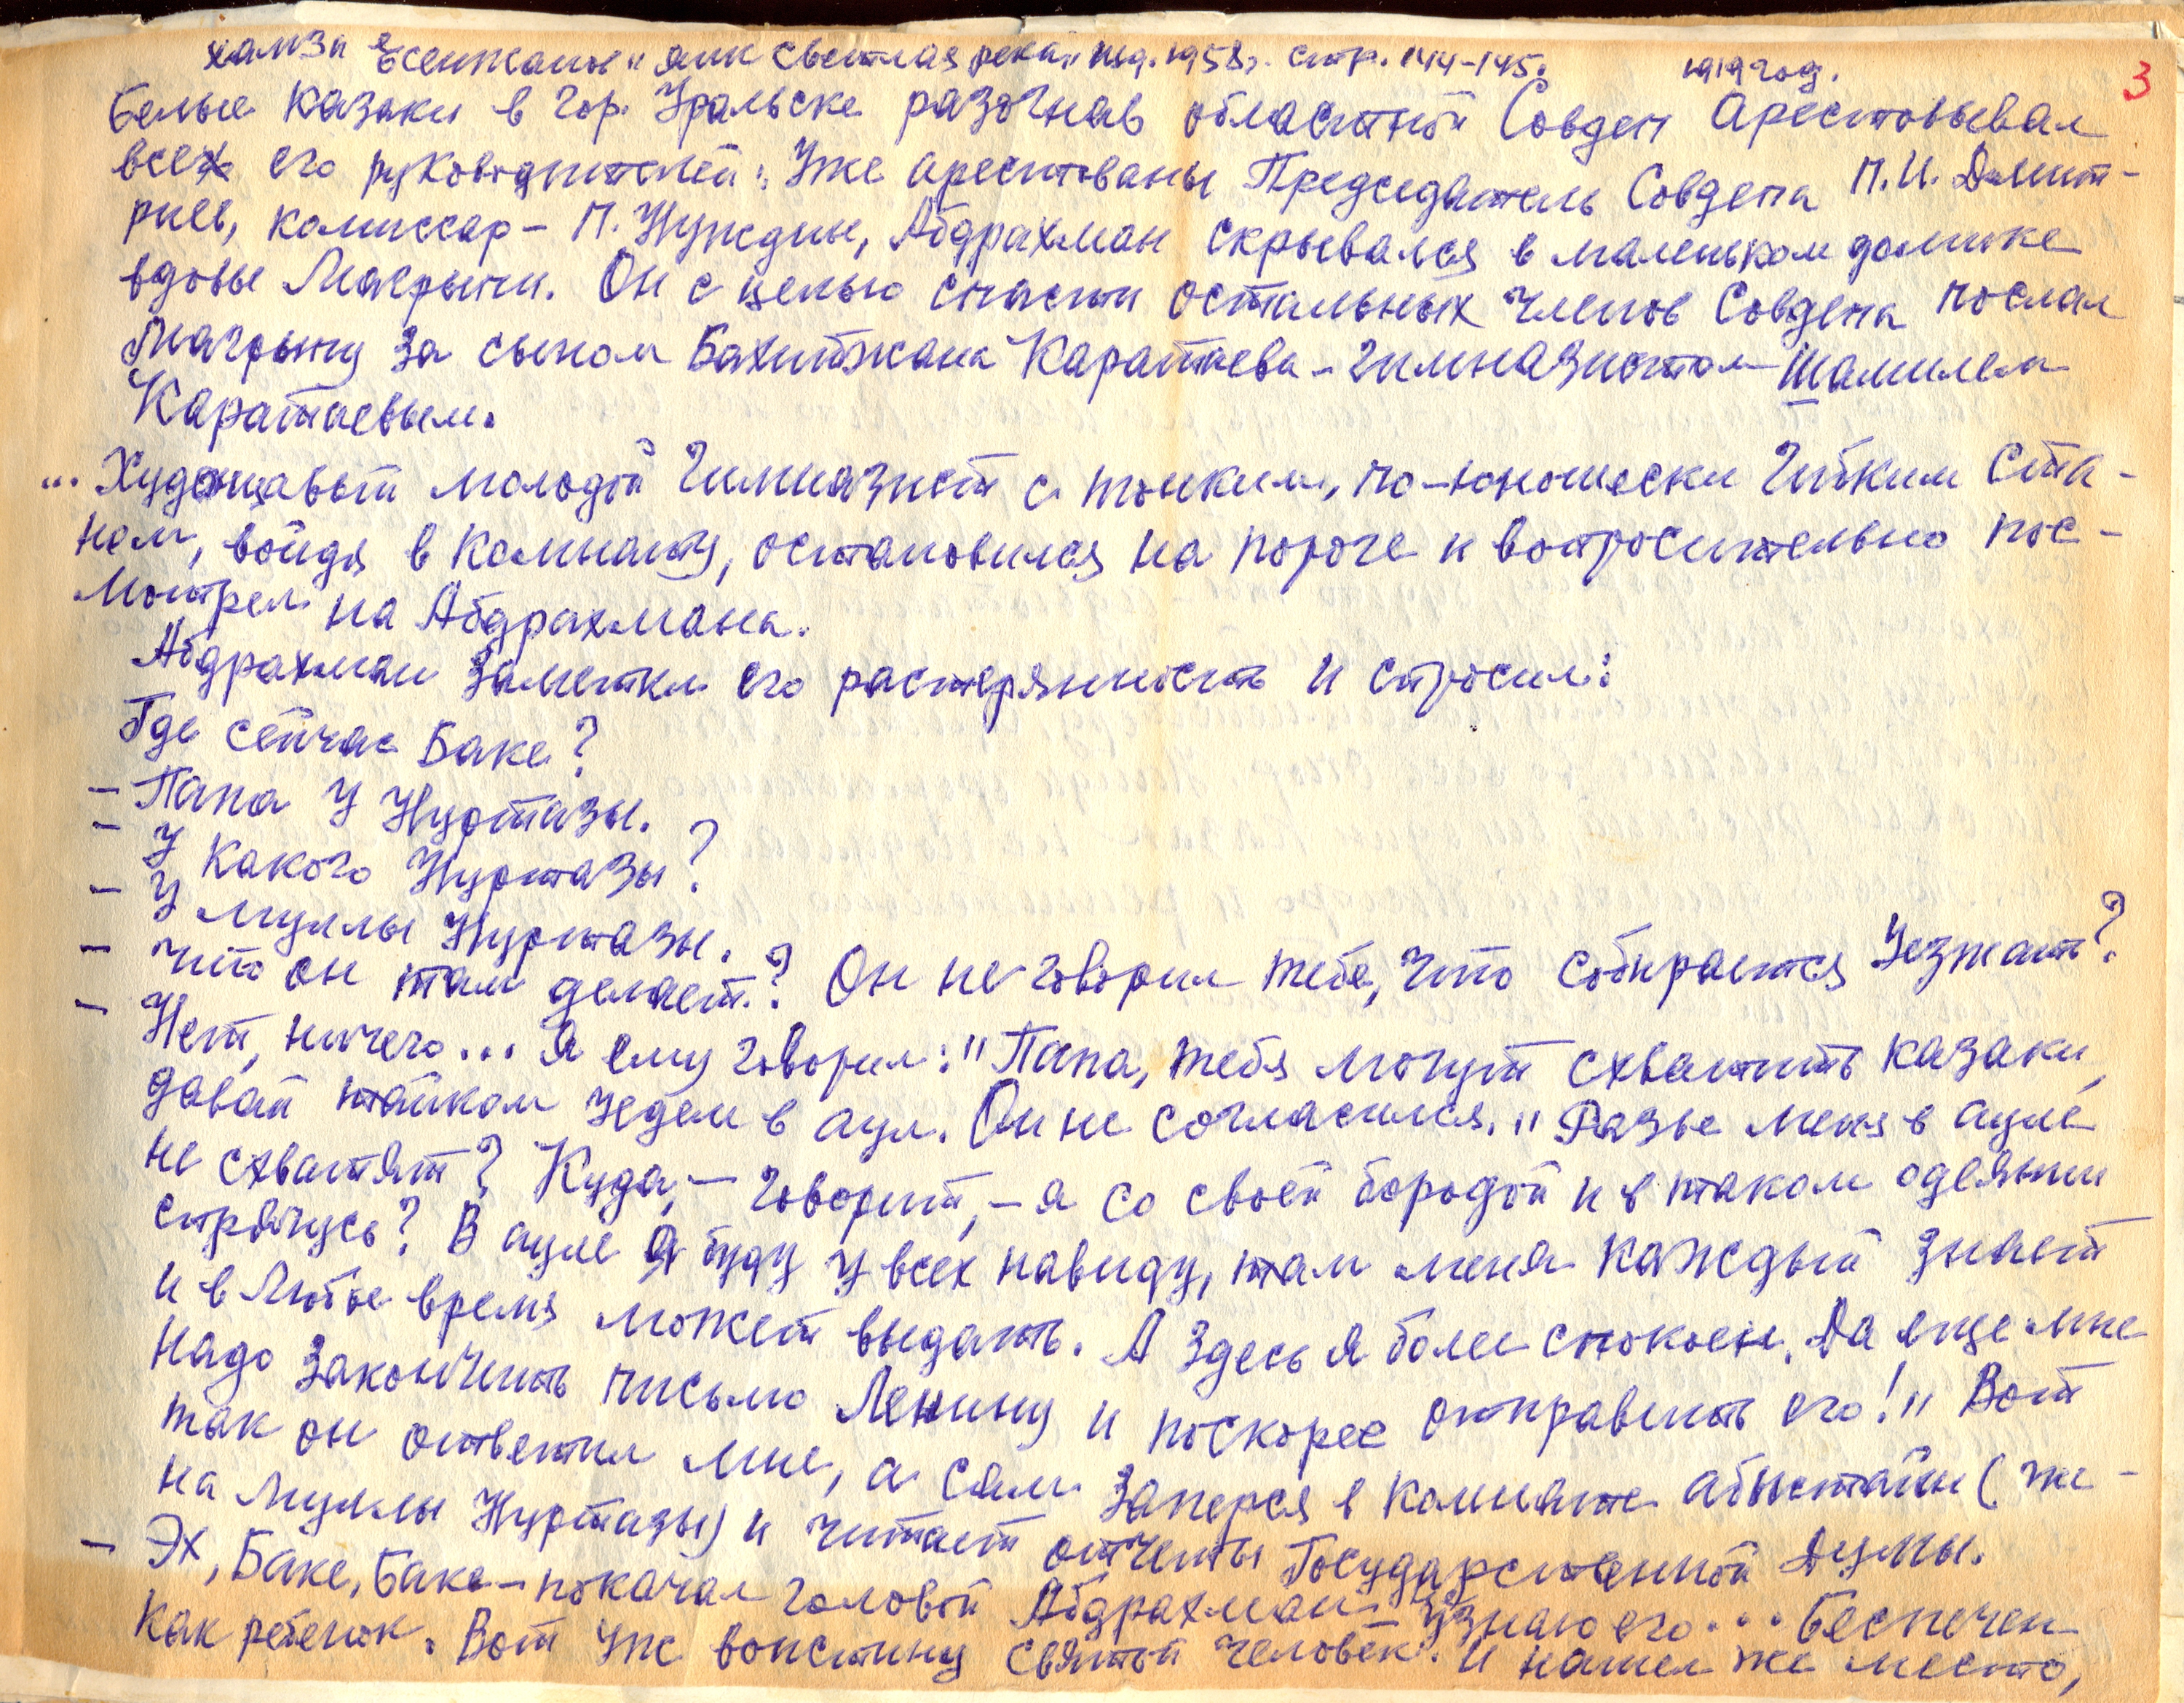 хамза Есенжанов "яик светлая река" изд. 1958г. стр. 144-145. 1919 год.
3
Белые казаки в гор. Уральске разогнав областной Совдеп Арестовывал
всех его руководителей: Уже арестованы Председатель Совдепа П.И. Дмит-
риев, комиссар - П. Нуждин, Абдрахман скрывался в маленьком домике
вдовы Макрыни. Он с целью спасти остальных членов Совдепа послал
Макрыну за сыном Бахитжана Каратаева - гимназистом Шамилем
Каратаевым.
... Худощавый молодой гимназист с тонким, по-юношески гибким ста-
ном, войдя в комнату, остановился на пороге и вопросительно пос-
мотрел на Абдрахмана.
Абдрахман заметил его растерянность и спросил:
Где сейчас Баке?
- Папа у Нуртазы.
- У какого Нуртазы?
- У муллы Нуртазы.
- Что он там делает? Он не говорил тебе, что собирается уезжать?
- Нет, ничего... Я ему говорил: "Папа, тебя могут схватить казаки,
давай тайком уедем в аул. Он не согласился. "Разве меня в ауле
не схватят? Куда, - говорит, - я со своей бородой и в таком одеянии
спрячусь? В ауле я буду у всех навиду, там меня каждый знает
и в любое время может выдать. А здесь я более спокоен. Да еще мне
надо закончить письмо Ленину и поскорее отправить его!" Вот
так он ответил мне, а сам заперся в комнате абыстай (же-
на муллы Нуртазы) и читает отчеты Государственной Думы.
- Эх, Баке, Баке - покачал головой Абдрахман - Узнаю его... Беспечен
как ребенок. Вот уж воистину святой человек. И нашел же место,